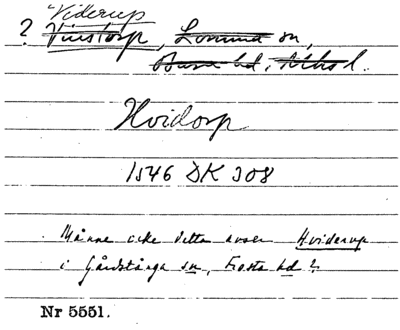 Viderup
? Vinstorp, Lomma sn,
Bara hd, Mlhs l.
Hvidorp
1546 DK 308
Månne icke detta avser Hviderup
i Gårdstånga sn, Frosta hd?
Nr 5551.